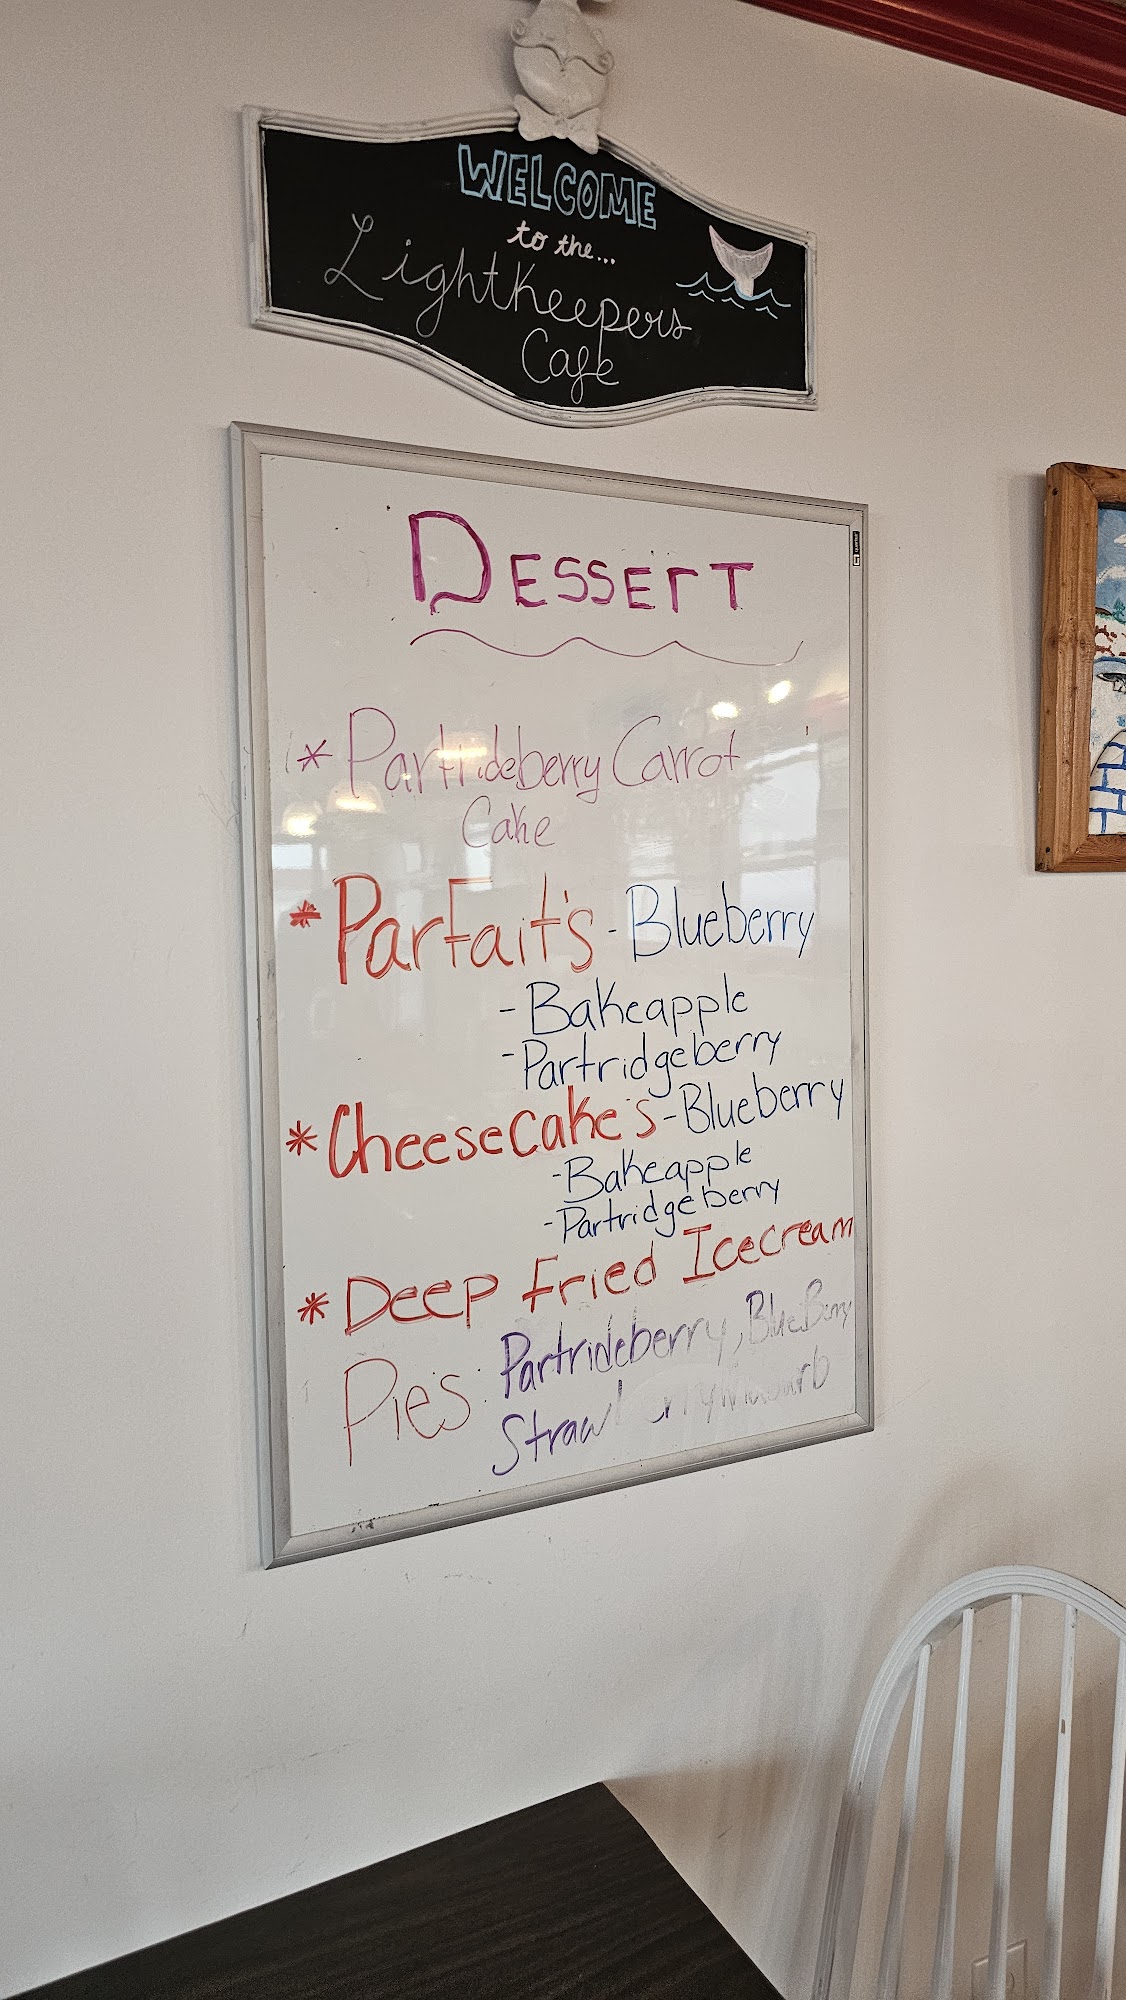 WELCOME
to the...
LightKeepers
Cafe
DESSErT
* Partrideberry Carrot
Cake
* ParFait's - Blueberry
- BaKeapple
- Partridgeberry
* CheesecaKe's - Blueberry
- BaKeapple
- Partridgeberry
* DEEP Fried Icecream
Pies: Partrideberry, BlueBerry